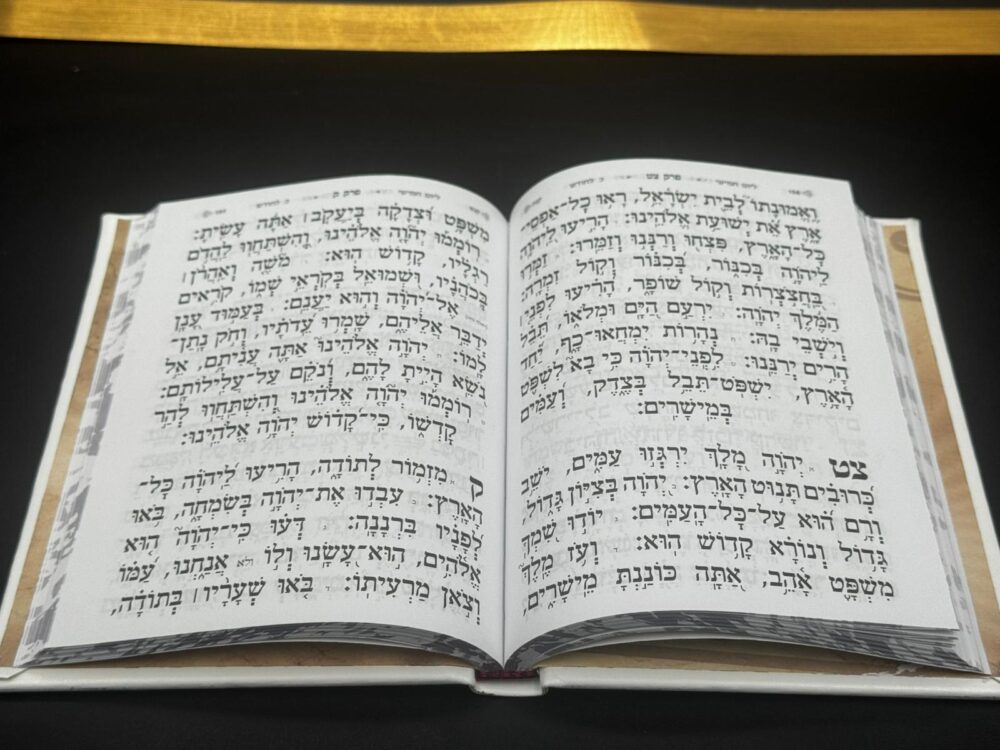 פרק צט
וֶאֱמוּנָתוֹ לְבֵית יִשְׂרָאֵל, רָאוּ כָל־אַפְסֵי־
אָרֶץ אֵת יְשׁוּעַת אֱלֹהֵינוּ: הָרִיעוּ לַיהוָה
כָּל־הָאָרֶץ, פִּצְחוּ וְרַנְּנוּ וְזַמֵּרוּ: זַמְּרוּ
לַיהוָה בְּכִנּוֹר, בְּכִנּוֹר וְקוֹל זִמְרָה:
בַּחֲצֹצְרוֹת וְקוֹל שׁוֹפָר, הָרִיעוּ לִפְנֵי
הַמֶּלֶךְ יְהוָה: יִרְעַם הַיָּם וּמְלֹאוֹ, תֵּבֵל
וְיֹשְׁבֵי בָהּ: נְהָרוֹת יִמְחֲאוּ־כָף, יַחַד
הָרִים יְרַנֵּנוּ: לִפְנֵי־יְהוָה כִּי בָא לִשְׁפֹּט
הָאָרֶץ, יִשְׁפֹּט־תֵּבֵל בְּצֶדֶק, וְעַמִּים
בְּמֵישָׁרִים:
צט יְהוָה מָלָךְ יִרְגְּזוּ עַמִּים, יֹשֵׁב
כְּרוּבִים תָּנוּט הָאָרֶץ: יְהוָה בְּצִיּוֹן גָּדוֹל,
וְרָם הוּא עַל־כָּל־הָעַמִּים: יוֹדוּ שִׁמְךָ
גָּדוֹל וְנוֹרָא קָדוֹשׁ הוּא: וְעֹז מֶלֶךְ
מִשְׁפָּט אָהֵב, אַתָּה כּוֹנַנְתָּ מֵישָׁרִים,
פרק ק
מִשְׁפָּט וּצְדָקָה בְּיַעֲקֹב׀ אַתָּה עָשִׂיתָ:
רוֹמְמוּ יְהוָה אֱלֹהֵינוּ, וְהִשְׁתַּחֲווּ לַהֲדֹם
רַגְלָיו, קָדוֹשׁ הוּא: מֹשֶׁה וְאַהֲרֹן׀
בְּכֹהֲנָיו, וּשְׁמוּאֵל בְּקֹרְאֵי שְׁמוֹ, קֹרִאים
אֶל־יְהוָה וְהוּא יַעֲנֵם: בְּעַמּוּד עָנָן
יְדַבֵּר אֲלֵיהֶם, שָׁמְרוּ עֵדֹתָיו, וְחֹק נָתַן־
לָמוֹ: יְהוָה אֱלֹהֵינוּ אַתָּה עֲנִיתָם, אֵל
נֹשֵׂא הָיִיתָ לָהֶם, וְנֹקֵם עַל־עֲלִילוֹתָם:
רוֹמְמוּ יְהוָה אֱלֹהֵינוּ וְהִשְׁתַּחֲווּ לְהַר
קָדְשׁוֹ, כִּי־קָדוֹשׁ יְהוָה אֱלֹהֵינוּ:
ק מִזְמוֹר לְתוֹדָה, הָרִיעוּ לַיהוָה כָּל־
הָאָרֶץ: עִבְדוּ אֶת־יְהוָה בְּשִׂמְחָה, בֹּאוּ
לְפָנָיו בִּרְנָנָה: דְּעוּ כִּי־יְהוָה הוּא
אֱלֹהִים, הוּא־עָשָׂנוּ וְלוֹ ולא אֲנַחְנוּ, עַמּוֹ
וְצֹאן מַרְעִיתוֹ: בֹּאוּ שְׁעָרָיו׀ בְּתוֹדָה,